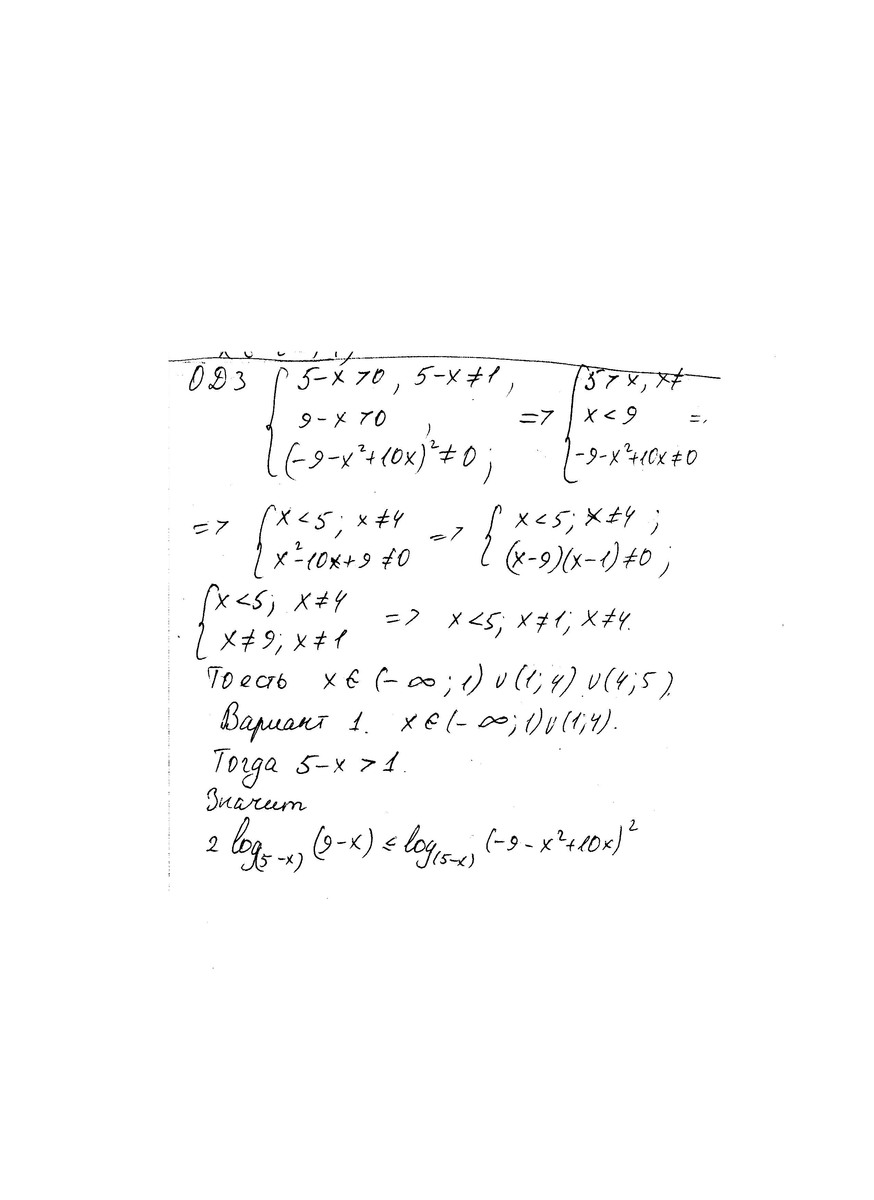 ОДЗ { 5-x>0, 5-x≠1, 9-x>0, (-9-x²+10x)²≠0; => { 5>x, x≠ x<9 -9-x²+10x≠0 =>
=> { x<5; x≠4 x²-10x+9≠0 => { x<5; x≠4; (x-9)(x-1)≠0;
{ x<5; x≠4 x≠9; x≠1 => x<5; x≠1; x≠4.
То есть x∈(-∞;1)∪(1;4)∪(4;5).
Вариант 1. x∈(-∞;1)∪(1;4).
Тогда 5-x>1.
Значит
2 log(5-x) (9-x) ≤ log(5-x) (-9-x²+10x)²